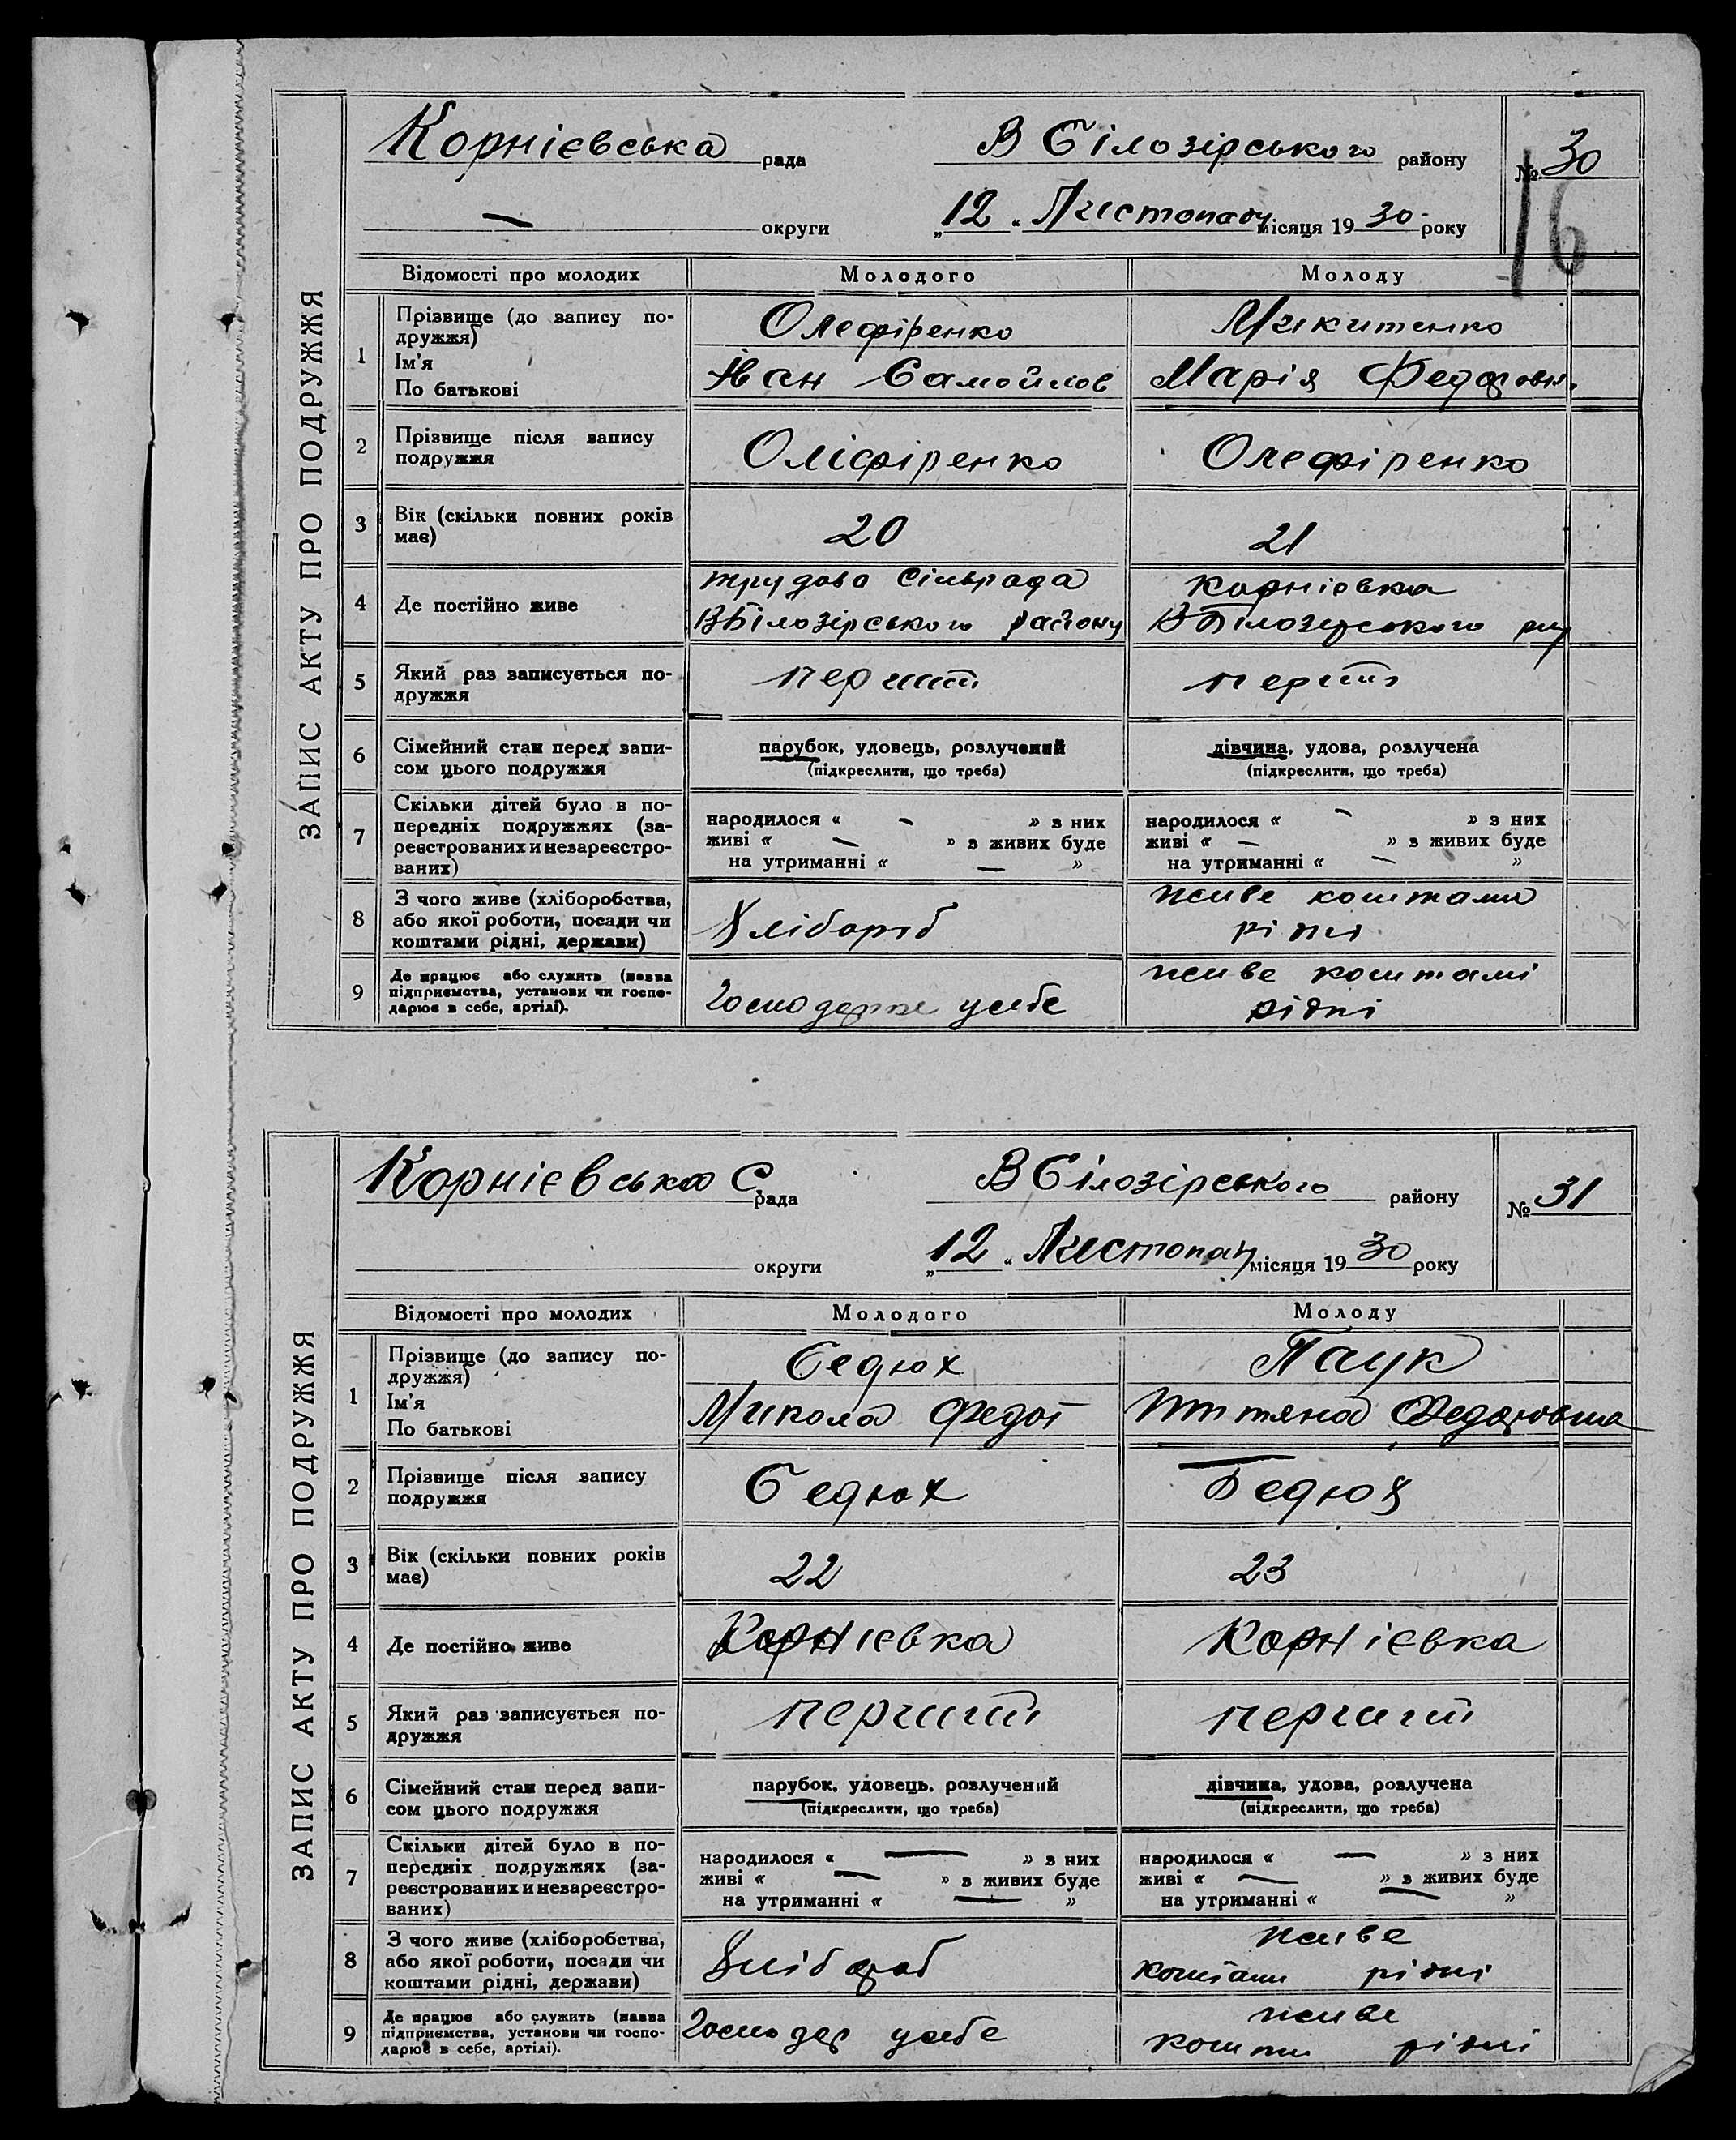 Корнієвська рада В Білозірського району № 30
16
— округи „12“ Листопаду місяця 1930 року
ЗАПИС АКТУ ПРО ПОДРУЖЖЯ
Відомості про молодих Молодого Молоду
1 Прізвище (до запису подружжя) Олефіренко Микитенко
Ім'я
По батькові Іван Самойлов Марія Федоровн.
2 Прізвище після запису подружжя Оліфіренко Олефіренко
3 Вік (скільки повних років має) 20 21
4 Де постійно живе трудова Сільрада Корнієвка
ВБілозірського району ВБілозерського
5 Який раз записується подружжя перший перший
6 Сімейний стан перед записом цього подружжя парубок, удовець, розлучений дівчина, удова, розлучена
(підкреслити, що треба) (підкреслити, що треба)
7 Скільки дітей було в попередніх подружжях (зареєстрованих и незареєстрованих) народилося « — » з них народилося « — » з них
живі « — » з живих буде живі « — » з живих буде
на утриманні « — » на утриманні « — »
8 З чого живе (хліборобства, або якої роботи, посади чи коштами рідні, держави) Хлібороб живе коштами
рідні
9 Де працює або служить (назва підприємства, установи чи господарює в себе, артілі). живе коштамі
рідні
Корнієвська С. рада В Білозірського району № 31
округи „12“ Листопад місяця 1930 року
ЗАПИС АКТУ ПРО ПОДРУЖЖЯ
Відомості про молодих Молодого Молоду
1 Прізвище (до запису подружжя) Бедюх Паук
Ім'я
По батькові Микола Федот Титяна Федоровна
2 Прізвище після запису подружжя Бедюх Бедюх
3 Вік (скільки повних років має) 22 23
4 Де постійно живе Корнієвка Корнієвка
5 Який раз записується подружжя перший перший
6 Сімейний стан перед записом цього подружжя парубок, удовець, розлучений дівчина, удова, розлучена
(підкреслити, що треба) (підкреслити, що треба)
7 Скільки дітей було в попередніх подружжях (зареєстрованих и незареєстрованих) народилося « — » з них народилося « — » з них
живі « — » з живих буде живі « — » з живих буде
на утриманні « — » на утриманні « — »
8 З чого живе (хліборобства, або якої роботи, посади чи коштами рідні, держави) Хлібороб живе
коштами рідні
9 Де працює або служить (назва підприємства, установи чи господарює в себе, артілі). Господар усебе живе
рідні